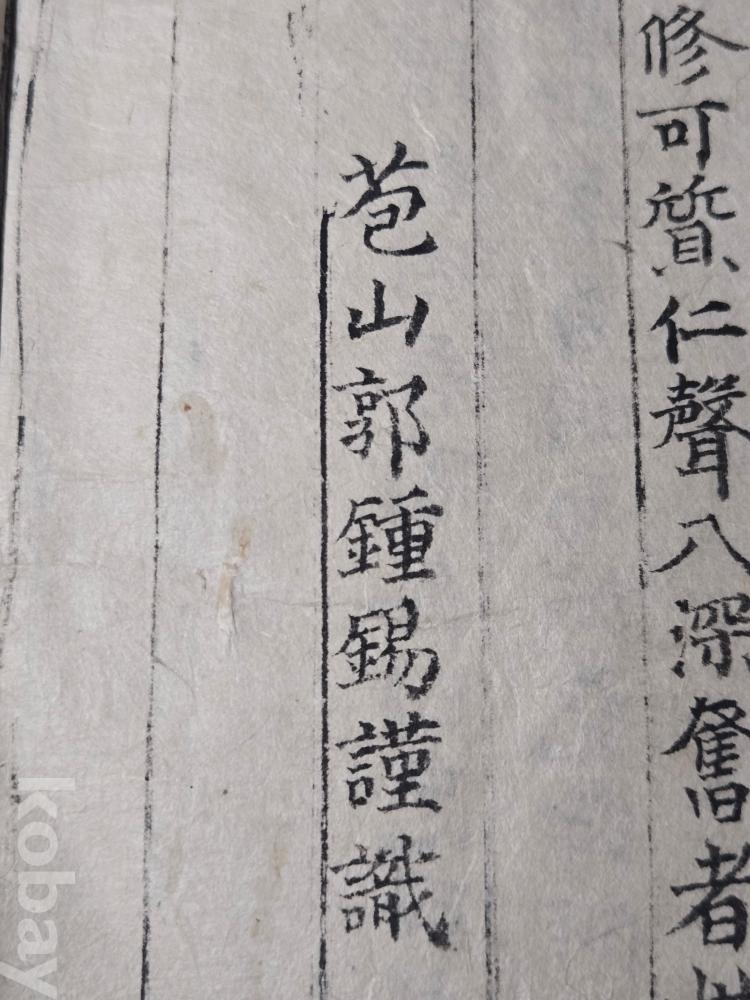 修可質仁聲入深舊者
苞山郭鍾錫謹識
kobay